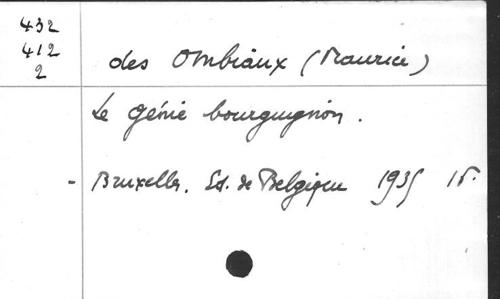 432
412
2
des Ombiaux (Maurice)
Le génie bourguignon.
- Bruxelles. Ed. de Belgique 1935